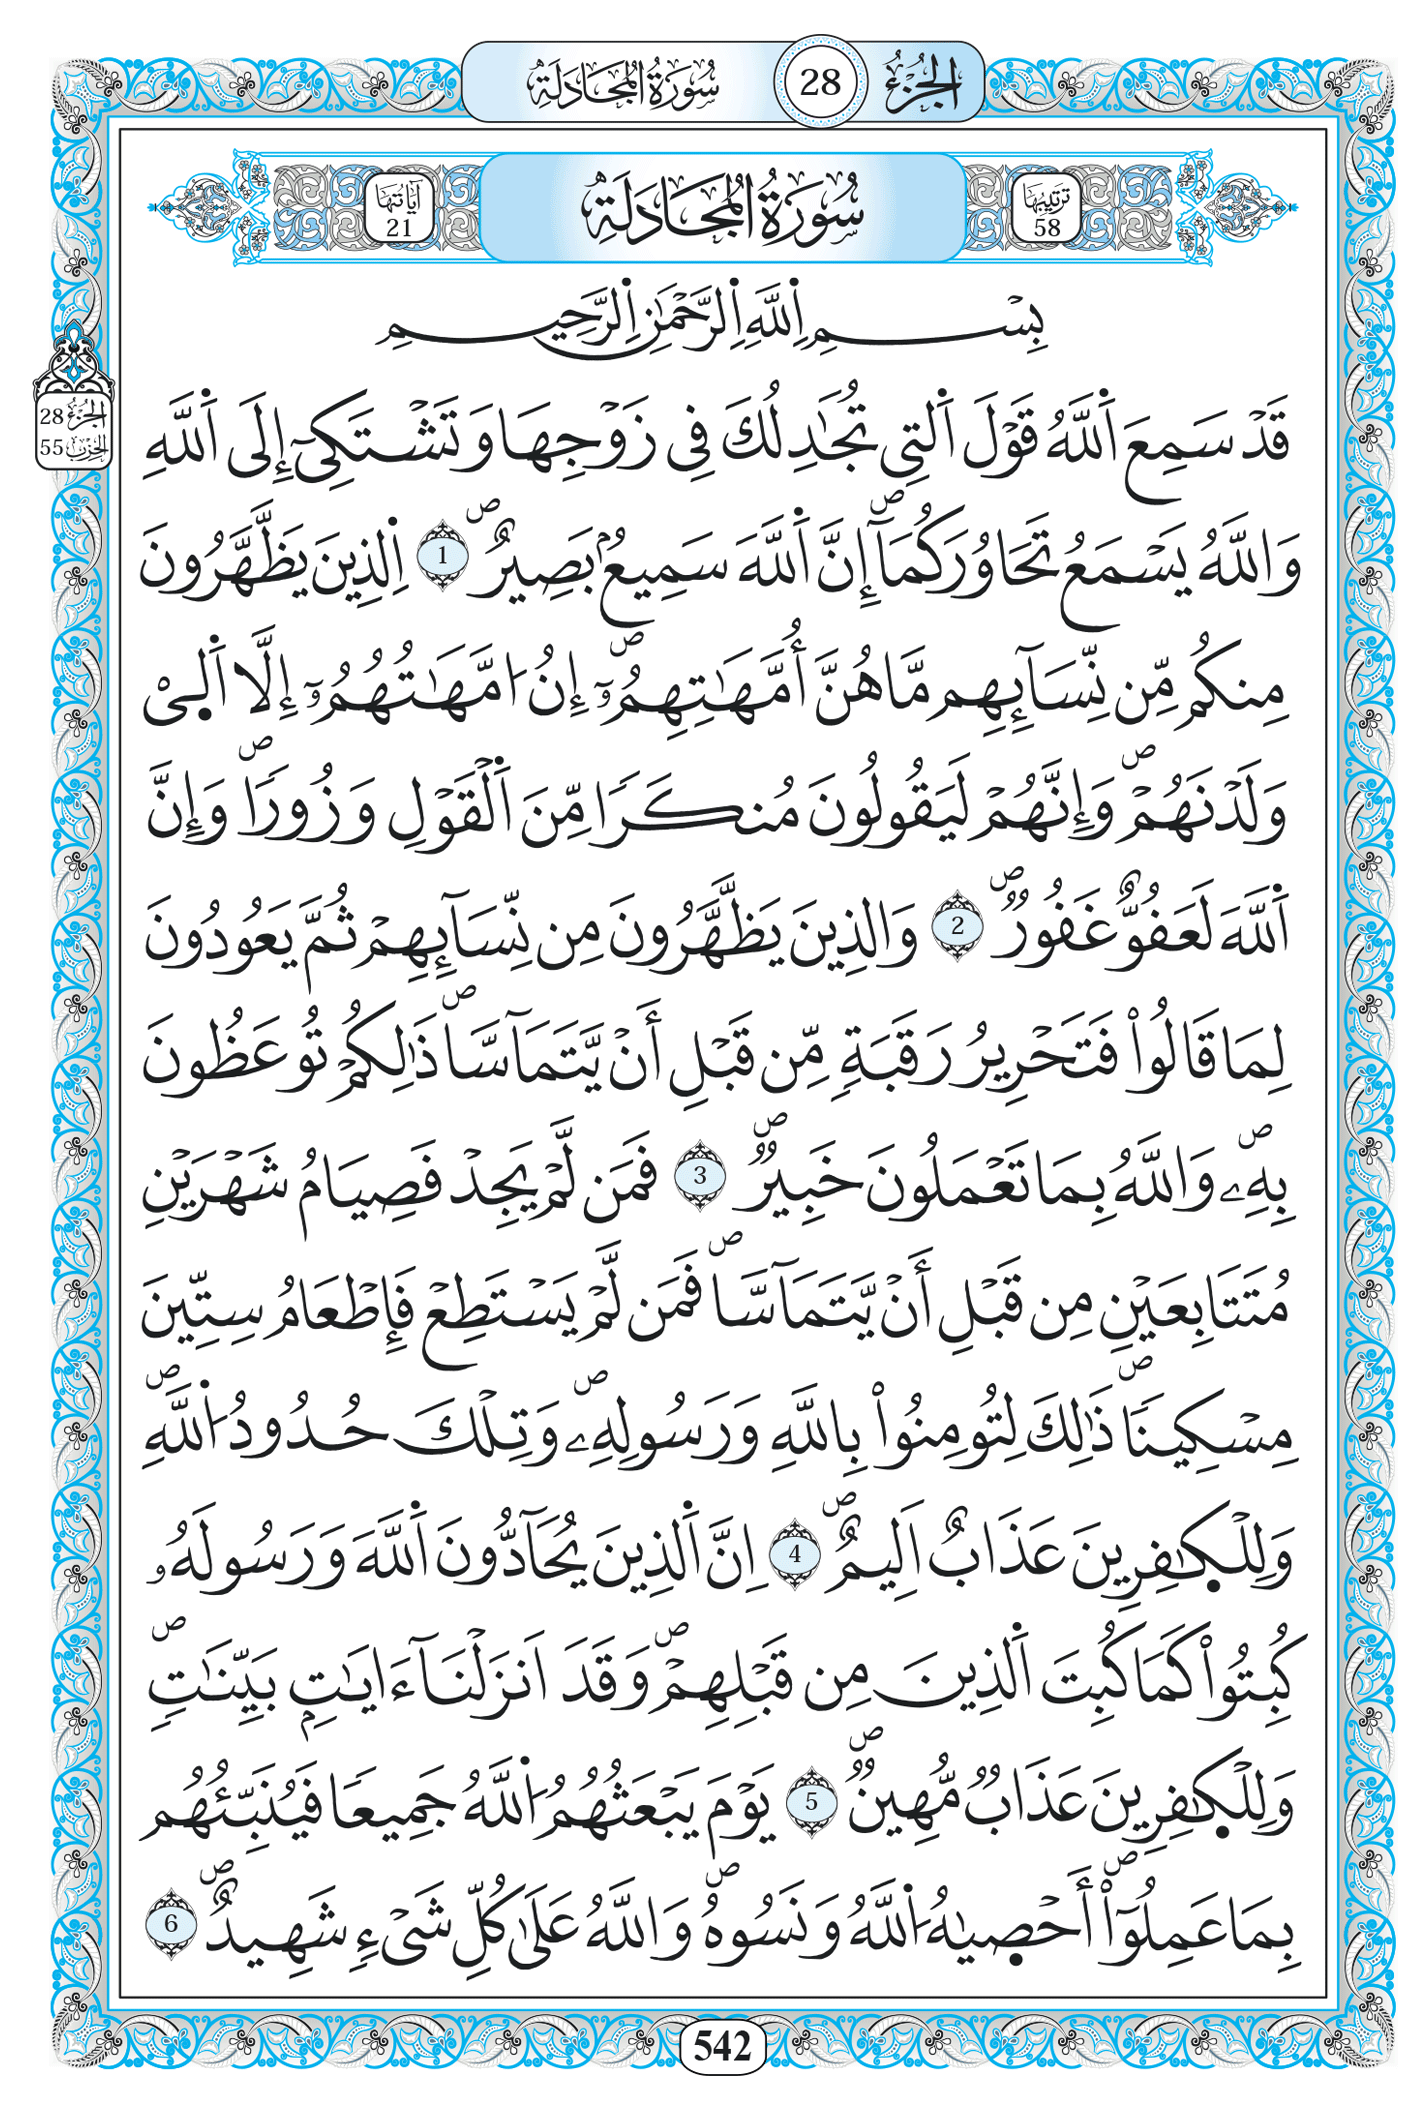 الجزء 28 سورة المجادلة
ترتيبها 58 سُورَةُ الْمُجَادَلَةِ آياتها 21
بِسْمِ اِ۬للَّهِ اِ۬لرَّحْمَٰنِ اِ۬لرَّحِيمِ
الجزء 28
الحزب 55
قَدْ سَمِعَ اَ۬للَّهُ قَوْلَ اَ۬لتِي تُجَٰدِلُكَ فِي زَوْجِهَا وَتَشْتَكِيٓ إِلَى اَ۬للَّهِ
وَاللَّهُ يَسْمَعُ تَحَاوُرَكُمَآۖ إِنَّ اَ۬للَّهَ سَمِيعُۢ بَصِيرٌۖ 1 اِ۬لذِينَ يَظَّهَّرُونَ
مِنكُم مِّن نِّسَآئِهِم مَّا هُنَّ أُمَّهَٰتِهِمُۥٓۖ إِنُ ا۟مَّهَٰتُهُمُۥٓ إِلَّا اَ۬لَٰٓـِٔے
وَلَدْنَهُمْۖ وَإِنَّهُمْ لَيَقُولُونَ مُنكَرًا مِّنَ اَ۬لْقَوْلِ وَزُورًاۖ وَإِنَّ
اَ۬للَّهَ لَعَفُوٌّ غَفُورٌۖ 2 وَالذِينَ يَظَّهَّرُونَ مِن نِّسَآئِهِمْ ثُمَّ يَعُودُونَ
لِمَا قَالُواْ فَتَحْرِيرُ رَقَبَةٍ مِّن قَبْلِ أَنْ يَّتَمَآسَّاۖ ذَٰلِكُمْ تُوعَظُونَ
بِهِۦۖ وَاللَّهُ بِمَا تَعْمَلُونَ خَبِيرٌۖ 3 فَمَن لَّمْ يَجِدْ فَصِيَامُ شَهْرَيْنِ
مُتَتَابِعَيْنِ مِن قَبْلِ أَنْ يَّتَمَآسَّاۖ فَمَن لَّمْ يَسْتَطِعْ فَإِطْعَامُ سِتِّينَ
مِسْكِينًاۖ ذَٰلِكَ لِتُومِنُواْ بِاللَّهِ وَرَسُولِهِۦۖ وَتِلْكَ حُدُودُ اُ۬للَّهِۖ
وَلِلْكٰ۪فِرِينَ عَذَابٌ اَلِيمٌۖ 4 اِنَّ اَ۬لذِينَ يُحَآدُّونَ اَ۬للَّهَ وَرَسُولَهُۥ
كُبِتُواْ كَمَا كُبِتَ اَ۬لذِينَ مِن قَبْلِهِمْۖ وَقَدَ اَنزَلْنَآ ءَايَٰتِۢ بَيِّنَٰتٍۖ
وَلِلْكٰ۪فِرِينَ عَذَابٌ مُّهِينٌۖ 5 يَوْمَ يَبْعَثُهُمُ اُ۬للَّهُ جَمِيعًا فَيُنَبِّئُهُم
بِمَا عَمِلُوٓاْۖ أَحْصٜيٰهُ اُ۬للَّهُ وَنَسُوهُۖ وَاللَّهُ عَلَىٰ كُلِّ شَيْءٍ شَهِيدٌۖ 6
542